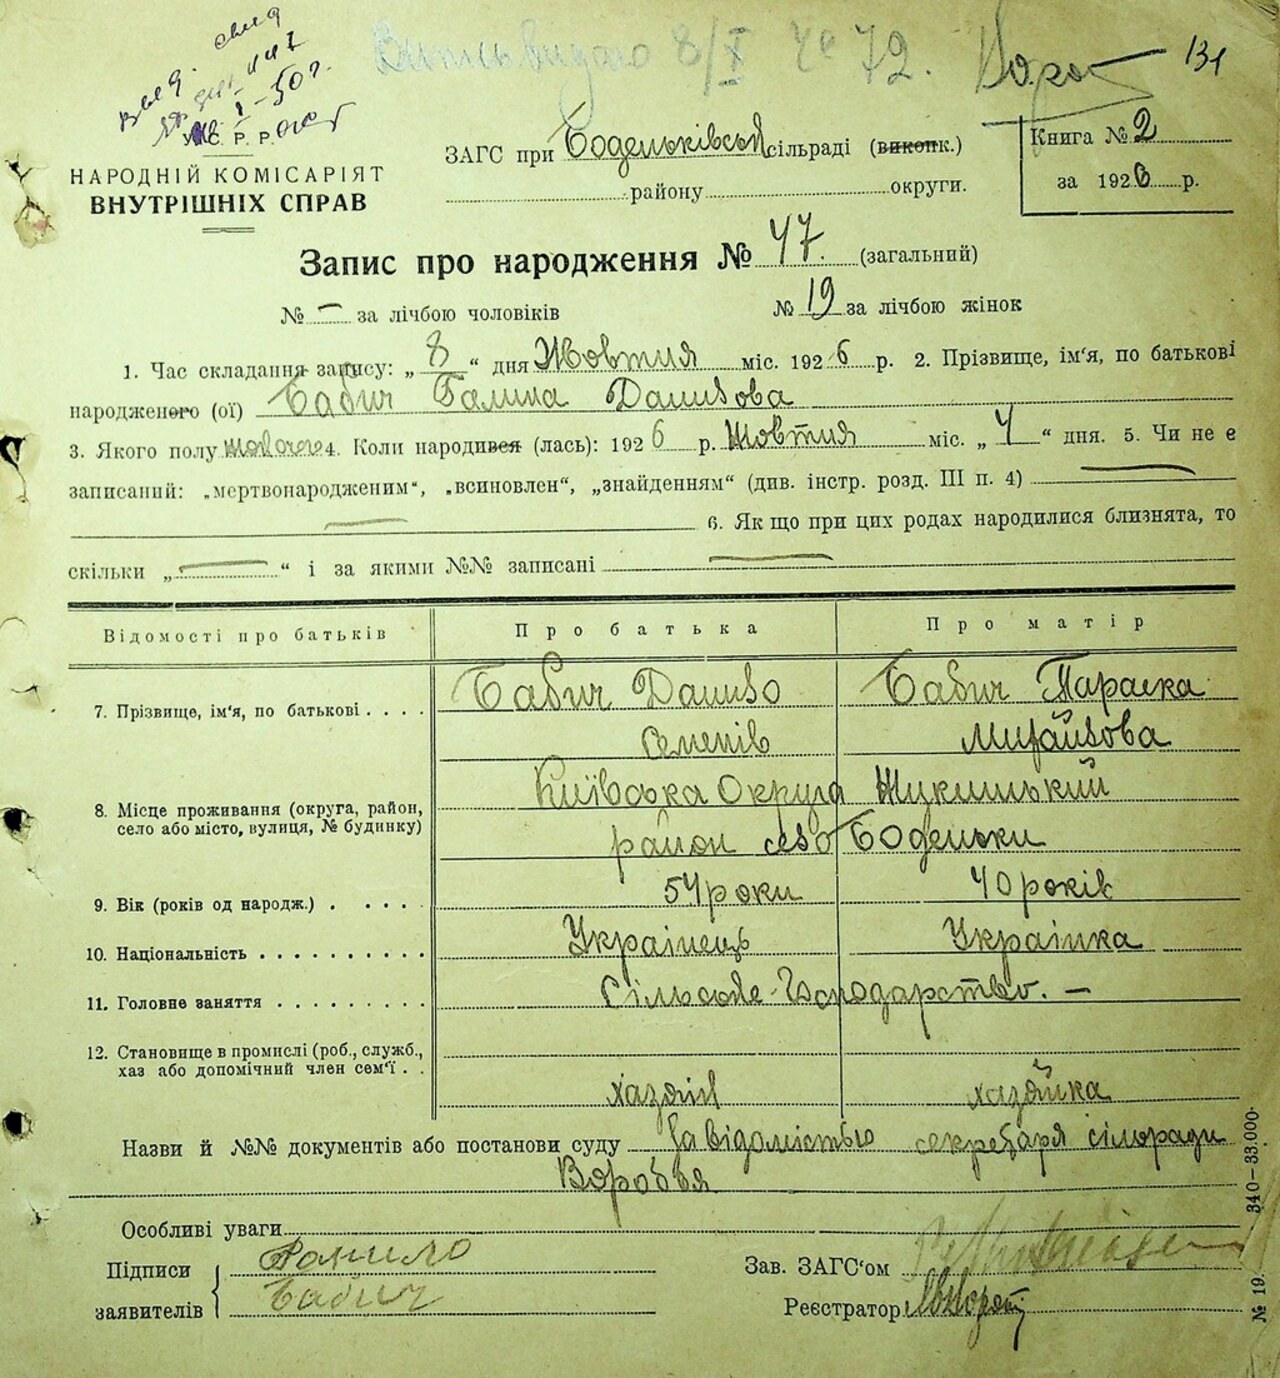 131
У. С. Р. Р.
НАРОДНІЙ КОМІСАРІЯТ
ВНУТРІШНІХ СПРАВ
ЗАГС при Боденьківськ сільраді (виконк.)
району округи.
Книга № 2
за 1926 р.
Запис про народження № 47. (загальний)
№ — за лічбою чоловіків № 19 за лічбою жінок
1. Час складання запису: „ 8 “ дня Жовтня міс. 1926 р. 2. Прізвище, ім'я, по батькові
народженого (ої) Бабич Галина Данилова
3. Якого полу 4. Коли народився (лась): 1926 р. Жовтня міс. „ 4 “ дня. 5. Чи не є
записаний: „мертвонародженим“, „всиновлен“, „знайденням“ (див. інстр. розд. III п. 4) —
— 6. Як що при цих родах народилися близнята, то
скільки „ — “ і за якими №№ записані —
Відомості про батьків Про батька Про матір
7. Прізвище, ім'я, по батькові . . . . Бабич Данило Бабич Параска
Семенів Михайлова
8. Місце проживання (округа, район, село або місто, вулиця, № будинку) Київська Округа Жукинський
район село Боденьки
9. Вік (років од народж.) . . . . . 54 роки 40 років
10. Національність . . . . . . . . . . Українець Українка
11. Головне заняття . . . . . . . . . Сільське Господарство. —
12. Становище в промислі (роб., служб.,
хаз або допомічний член сем'ї . . хазяїн хазяйка
Назви й №№ документів або постанови суду За відомістью секретаря сільради
Воробья
Особливі уваги
Підписи Данило
заявителів Бабич
Зав. ЗАГС'ом
Реєстратор
340—33.000.
№ 19.